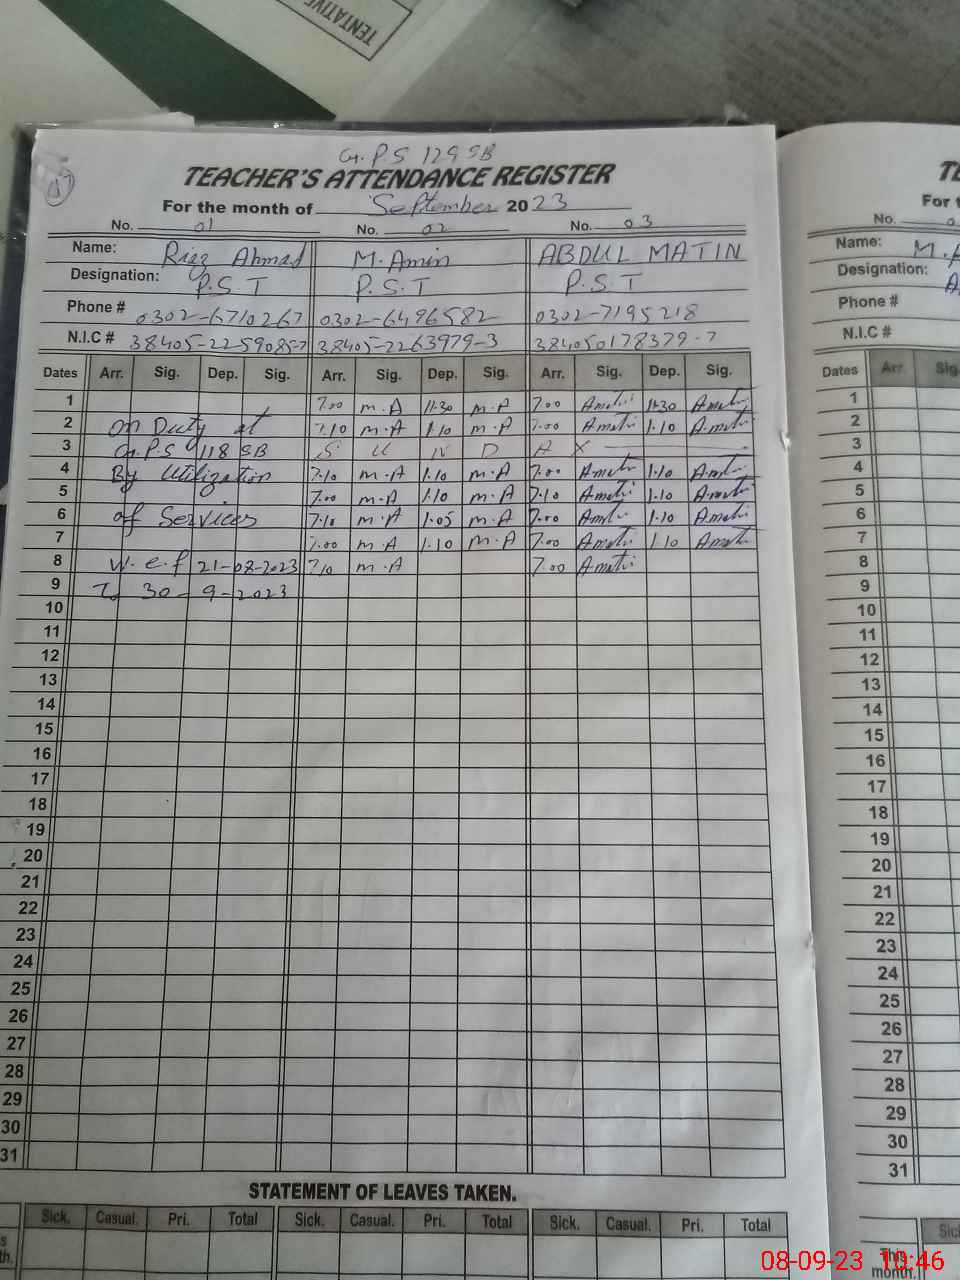 TENTATIVE
G.P.S 129 SB
TEACHER'S ATTENDANCE REGISTER
For the month of September 2023
No. 01 No. 02 No. 03
Name: Riaz Ahmad M. Amin ABDUL MATIN
Designation: P.S.T P.S.T P.S.T
Phone # 0302-6710267 0302-6496582 0302-7195218
N.I.C # 38405-2259085-7 38405-2263979-3 384050178379-7
Dates Arr. Sig. Dep. Sig. Arr. Sig. Dep. Sig. Arr. Sig. Dep. Sig.
1 7.00 M.A 11.30 M.A 7.00 Amatin 11.30 Amatin
2 on Duty at 7.10 M.A 1.10 M.A 7.00 Amatin 1.10 Amatin
3 G.P.S 118 SB S U N D A
4 By Utilization 7.10 M.A 1.10 M.A 7.00 Amatin 1.10 Amatin
5 7.00 M.A 1.10 M.A 7.10 Amatin 1.10 Amatin
6 of Services 7.10 M.A 1.05 M.A 7.00 Amatin 1.10 Amatin
7 7.00 M.A 1.10 M.A 7.00 Amatin 1.10 Amatin
8 W.e.f 21-08-2023 7.10 M.A 7.00 Amatin
9 To 30-9-2023
10
11
12
13
14
15
16
17
18
19
20
21
22
23
24
25
26
27
28
29
30
31
STATEMENT OF LEAVES TAKEN.
Sick. Casual. Pri. Total Sick. Casual. Pri. Total Sick. Casual. Pri. Total
No.
Name:
Designation:
Phone #
N.I.C #
Dates Arr.
1
2
3
4
5
6
7
8
9
10
11
12
13
14
15
16
17
18
19
20
21
22
23
24
25
26
27
28
29
30
31
This
month.
08-09-23 10:46